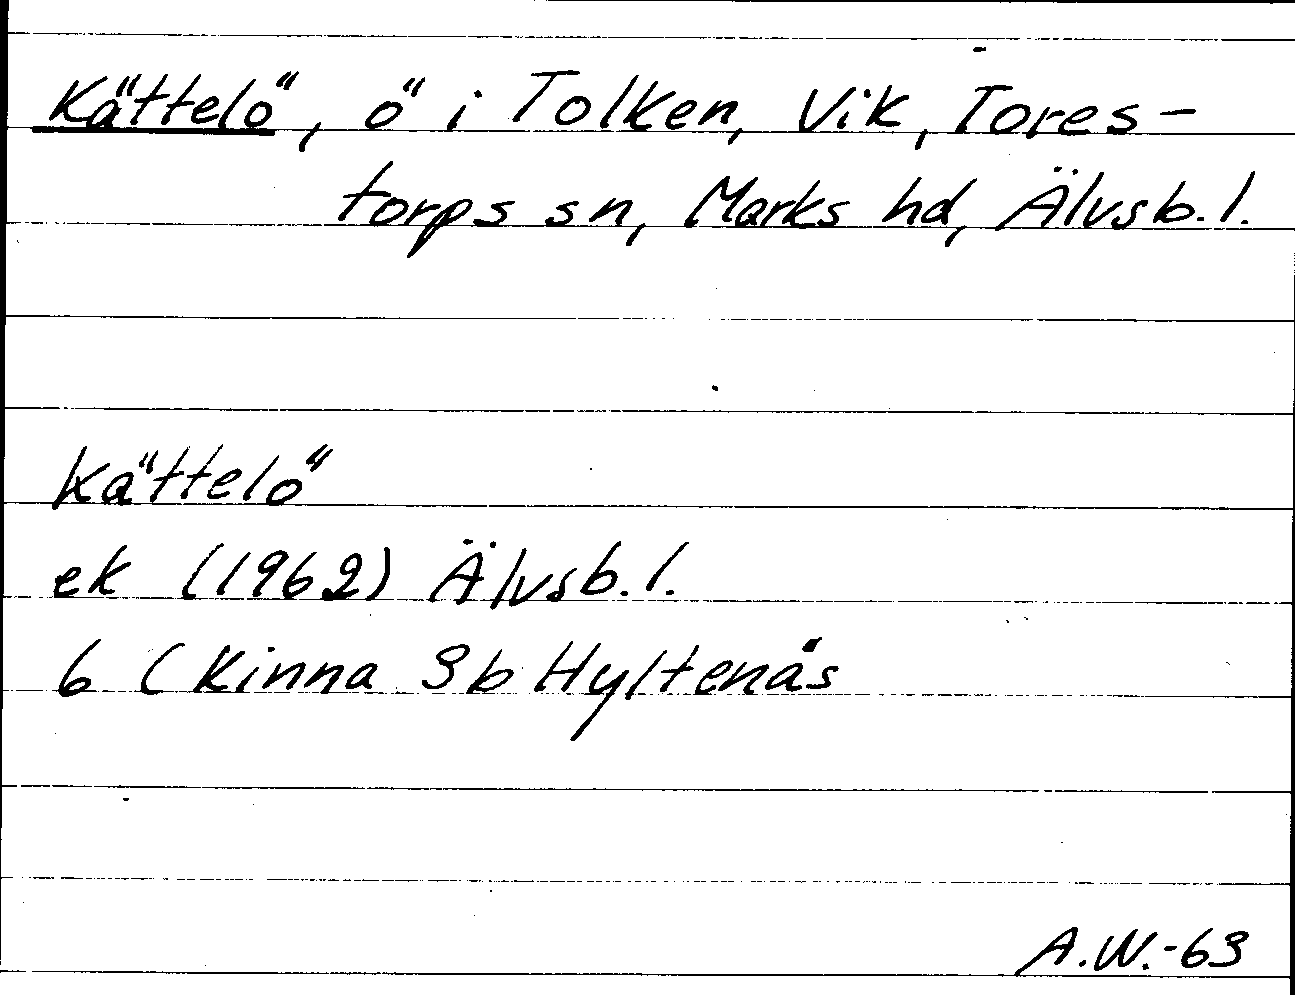 Kättelö, ö i Tolken, Vik, Tores-
torps sn, Marks hd, Älvsb. l.
Kättelö
ek (1962) Älvsb. l.
6 ( Kinna 3b Hyltenäs
A.W.-63